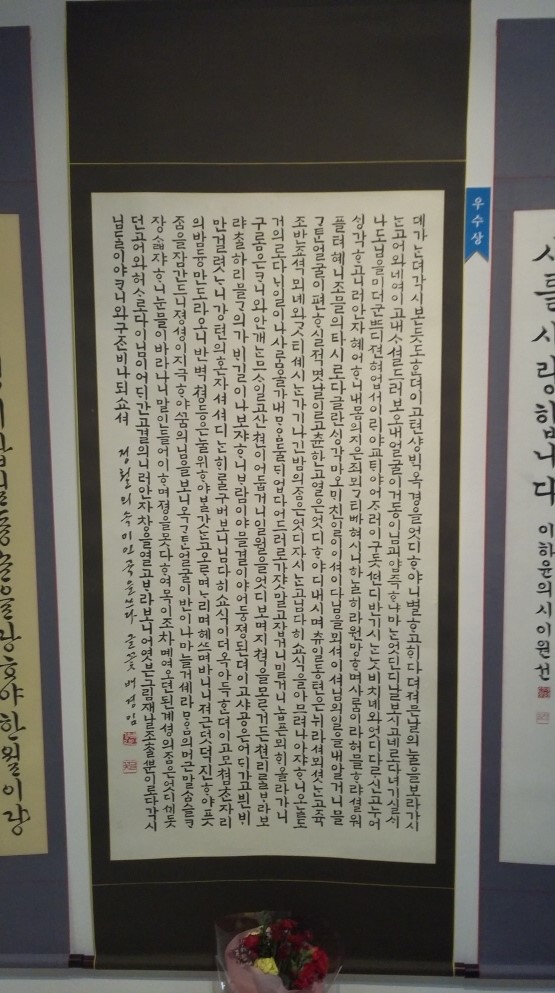 사를 사랑합니다
이하윤의 시 이원선
우수상
뎨가ᄂᆞᆫ뎌각시본듯도ᄒᆞᆫ뎌이고텬샹ᄇᆡᆨ옥경을엇디ᄒᆞ야니별ᄒᆞ고ᄒᆡ다뎌져믄날의눌을보라가시
ᄂᆞᆫ고어와네여이고내ᄉᆞ셜드러보오내얼굴이거동이님괴얌즉ᄒᆞᆫ가마ᄂᆞᆫ엇딘디날보시고네로다녀기실ᄉᆡ
나도님을미더군ᄠᅳ디젼혀업서이ᄅᆡ야교ᄐᆡ야어ᄌᆞ러이구돗ᄯᅥᆫ디반기시ᄂᆞᆫᄂᆞᆺ비치녜와엇디다ᄅᆞ신고누어
ᄉᆡᆼ각ᄒᆞ고니러안자혜여ᄒᆞ니내몸의지은죄뫼ᄀᆞ티ᄡᅡ혀시니하ᄂᆞᆯ히라원망ᄒᆞ며사ᄅᆞᆷ이라허믈ᄒᆞ랴셜워
플텨혜니조믈의타시로다글란ᄉᆡᆼ각마오ᄆᆡ친일이이셔이다님을뫼셔이셔님의일을내알거니믈
ᄀᆞᄐᆞᆫ얼굴이편ᄒᆞ실적몃날이고츈한고열은엇디ᄒᆞ야디내시며츄일동텬은뉘라셔뫼셧ᄂᆞᆫ고쥭
조반죠셕뫼녜와ᄀᆞᆺ티셰시ᄂᆞᆫ가기나긴밤의ᄌᆞᆷ은엇디자시ᄂᆞᆫ고님다히쇼식을아므려나아쟈ᄒᆞ니오ᄂᆞᆯ도
거의로다ᄂᆡ일이나사ᄅᆞᆷ올가내ᄆᆞᄋᆞᆷ둘ᄃᆡ업다어드러로가쟛말고잡거니밀거니놉픈뫼ᄒᆡ올라가니
구롬은ᄏᆞ니와안개ᄂᆞᆫ므ᄉᆞ일고산쳔이어둡거니일월을엇디보며지쳑을모ᄅᆞ거든쳔리ᄅᆞᆯᄇᆞ라보
랴ᄎᆞᆯ하리믈ᄀᆞ의가ᄇᆡ길이나보쟈ᄒᆞ니ᄇᆞ람이야믈결이야어둥졍된뎌이고샤공은어ᄃᆡ가고븬ᄇᆡ
만걸렷ᄂᆞ니강텬의혼자셔셔디ᄂᆞᆫᄒᆡᄅᆞᆯ구버보니님다히쇼식이더옥아득ᄒᆞᆫ뎌이고모쳠ᄎᆞᆫ자리
의밤듕만도라오니반벽쳥등은눌위ᄒᆞ야ᄇᆞᆯ갓ᄂᆞᆫ고오ᄅᆞ며ᄂᆞ리며헤ᄯᅳ며바니니져근덧녁진ᄒᆞ야픗
ᄌᆞᆷ을잠간드니졍셩이지극ᄒᆞ야ᄭᅮᆷ의님을보니옥ᄀᆞᄐᆞᆫ얼굴이반이나마늘거셰라ᄆᆞᄋᆞᆷ의머근말ᄉᆞᆷ슬ᄏᆞ
장ᄉᆞᆲ쟈ᄒᆞ니눈믈이바라나니말인들어이ᄒᆞ며졍을못다ᄒᆞ여목이조차몌여오뎐된계셩의ᄌᆞᆷ은엇디ᄭᆡ돗
던고어와허ᄉᆞ로다이님이어ᄃᆡ간고결의니러안자창을열고ᄇᆞ라보니어엿븐그림재날조ᄎᆞᆯᄲᅮᆫ이로다각시
님ᄃᆞᆯ이야ᄏᆞ니와구ᄌᆞᆫ비나되쇼셔 정철의 속미인곡을 쓰다 글꽃 배경임
을랑ᄒᆞ야한월이랑